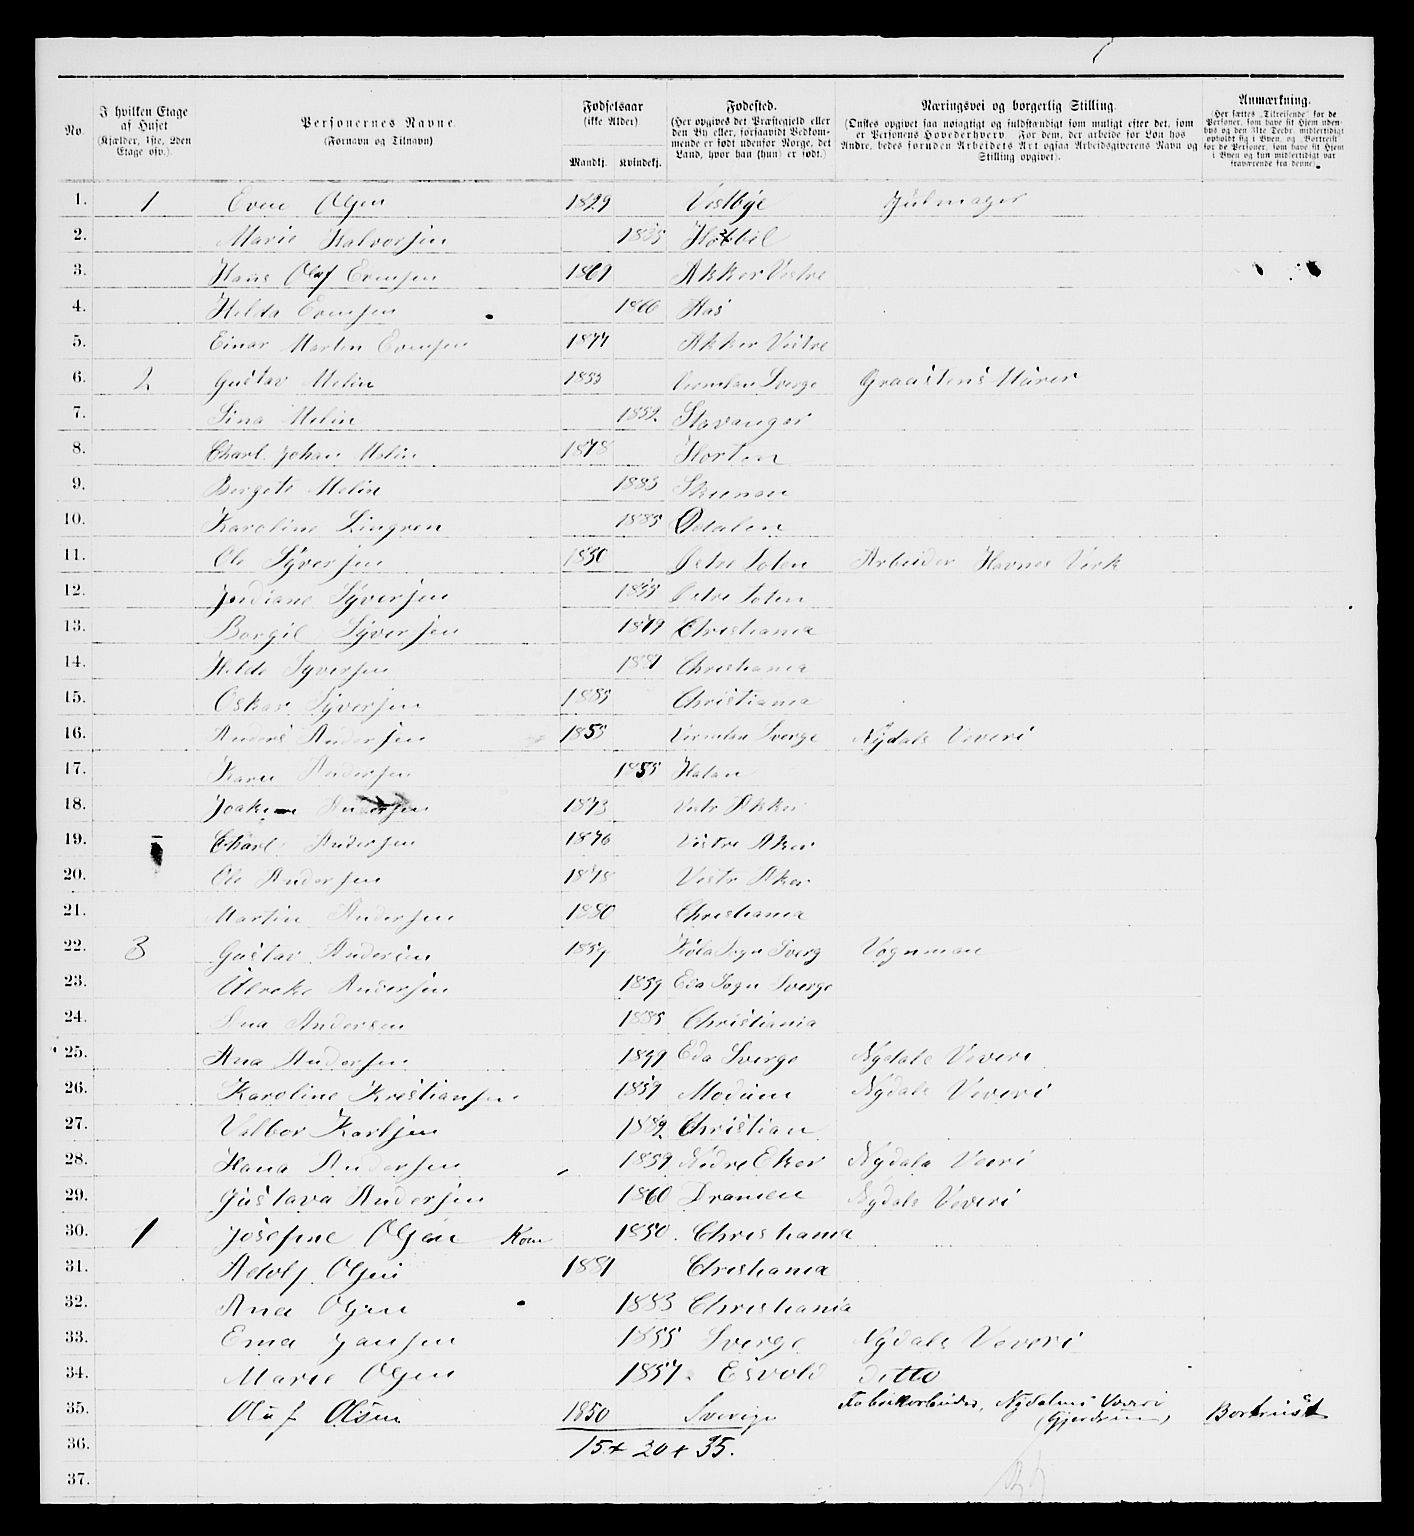 No. I hvilken Etage af Huset (Kjælder, 1ste, 2den Etage osv.). Personernes Navne. (Fornavn og Tilnavn) Fødselsaar (ikke Alder). Mandkj. Kvindekj. Fødested. (Her opgives det Præstegjeld eller den By eller, forsaavidt Vedkommende er født udenfor Norge, det Land, hvor han (hun) er født.) Næringsvei og borgerlig Stilling. (Ønskes opgivet saa nøiagtigt og fuldstændigt som muligt efter det, som er Personens Hovederhverv. For dem, der arbeide for Løn hos Andre, bedes foruden Arbeidets Art ogsaa Arbeidsgiverens Navn og Stilling opgivet). Anmærkning. (Her sættes „Tilreisende" for de Personer, som have sit Hjem udenbys og den 31te Decbr. midlertidigt opholdt sig i Byen, og „Bortreist" for de Personer, som have sit Hjem i Byen og kun midlertidigt var fraværende fra denne).
1. 1 Even Olsen 1829 Vestbye Julmager
2. Marie Halvorsen 1835 Hobbel
3. Hans Olaf Evensen 1869 Akker Vestre
4. Hilda Evensen 1866 Aas
5. Einar Morten Evensen 1877 Akker Vestre
6. 2 Gustav Melin 1853 Vermlan Sverge Graastens Murer
7. Lina Melin 1852 Stavanger
8. Charl Johan Melin 1878 Horten
9. Bergete Melin 1883
10. Karoline Lingren 1885 Odalen
11. Ole Syversen 1850 Østre Toten Arbeider Havnes Verk
12. Syversen 1855 Østre Toten
13. Borgil Syversen 1879 Christiania
14. Hilda Syversen 1881 Christiania
15. Oskar Syversen 1885 Christiania
16. Anders Andersen 1855 Vermlan Sverge Nydals Veveri
17. Karn Andersen 1855 Halan
18. Joakim Andersen 1873 Vestr Akker
19. Charl Andersen 1876 Vestre Aker
20. Ole Andersen 1878 Vestr Aker
21. Martin Andersen 1880 Christiania
22. 3 Gustav Andersen 1859 Køla Sogn Sverg Vognman
23. Ulreke Andersen 1859 Eda Sogn Sverge
24. Andersen 1885 Christiania
25. Ana Andersen Eda Sverge Nydals Veveri
26. Karoline Kristiansen 1859 Modum Nydals Veveri
27. Valbor Karlsen 1882 Christian
28. Hana Andersen 1859 Nidre Eker Nydals Veeri
29. Gustava Andersen 1860 Dramen Nydals Veveri
30. 1 Josefine Olsen Kone 1850 Christiania
31. Adolf Olsen 1881 Christiania
32. Ana Olsen 1883 Christiania
33. Ema Jansen 1855 Sverge Nydals Veveri
34. Marie Olsen 1857 Eisvold ditto
35. Oluf Olsen 1850 Sverige Fabrikarbeider, Nydalens Væveri (Gjerdrum) Bortreist
36. 15 + 20 + 35.
37.